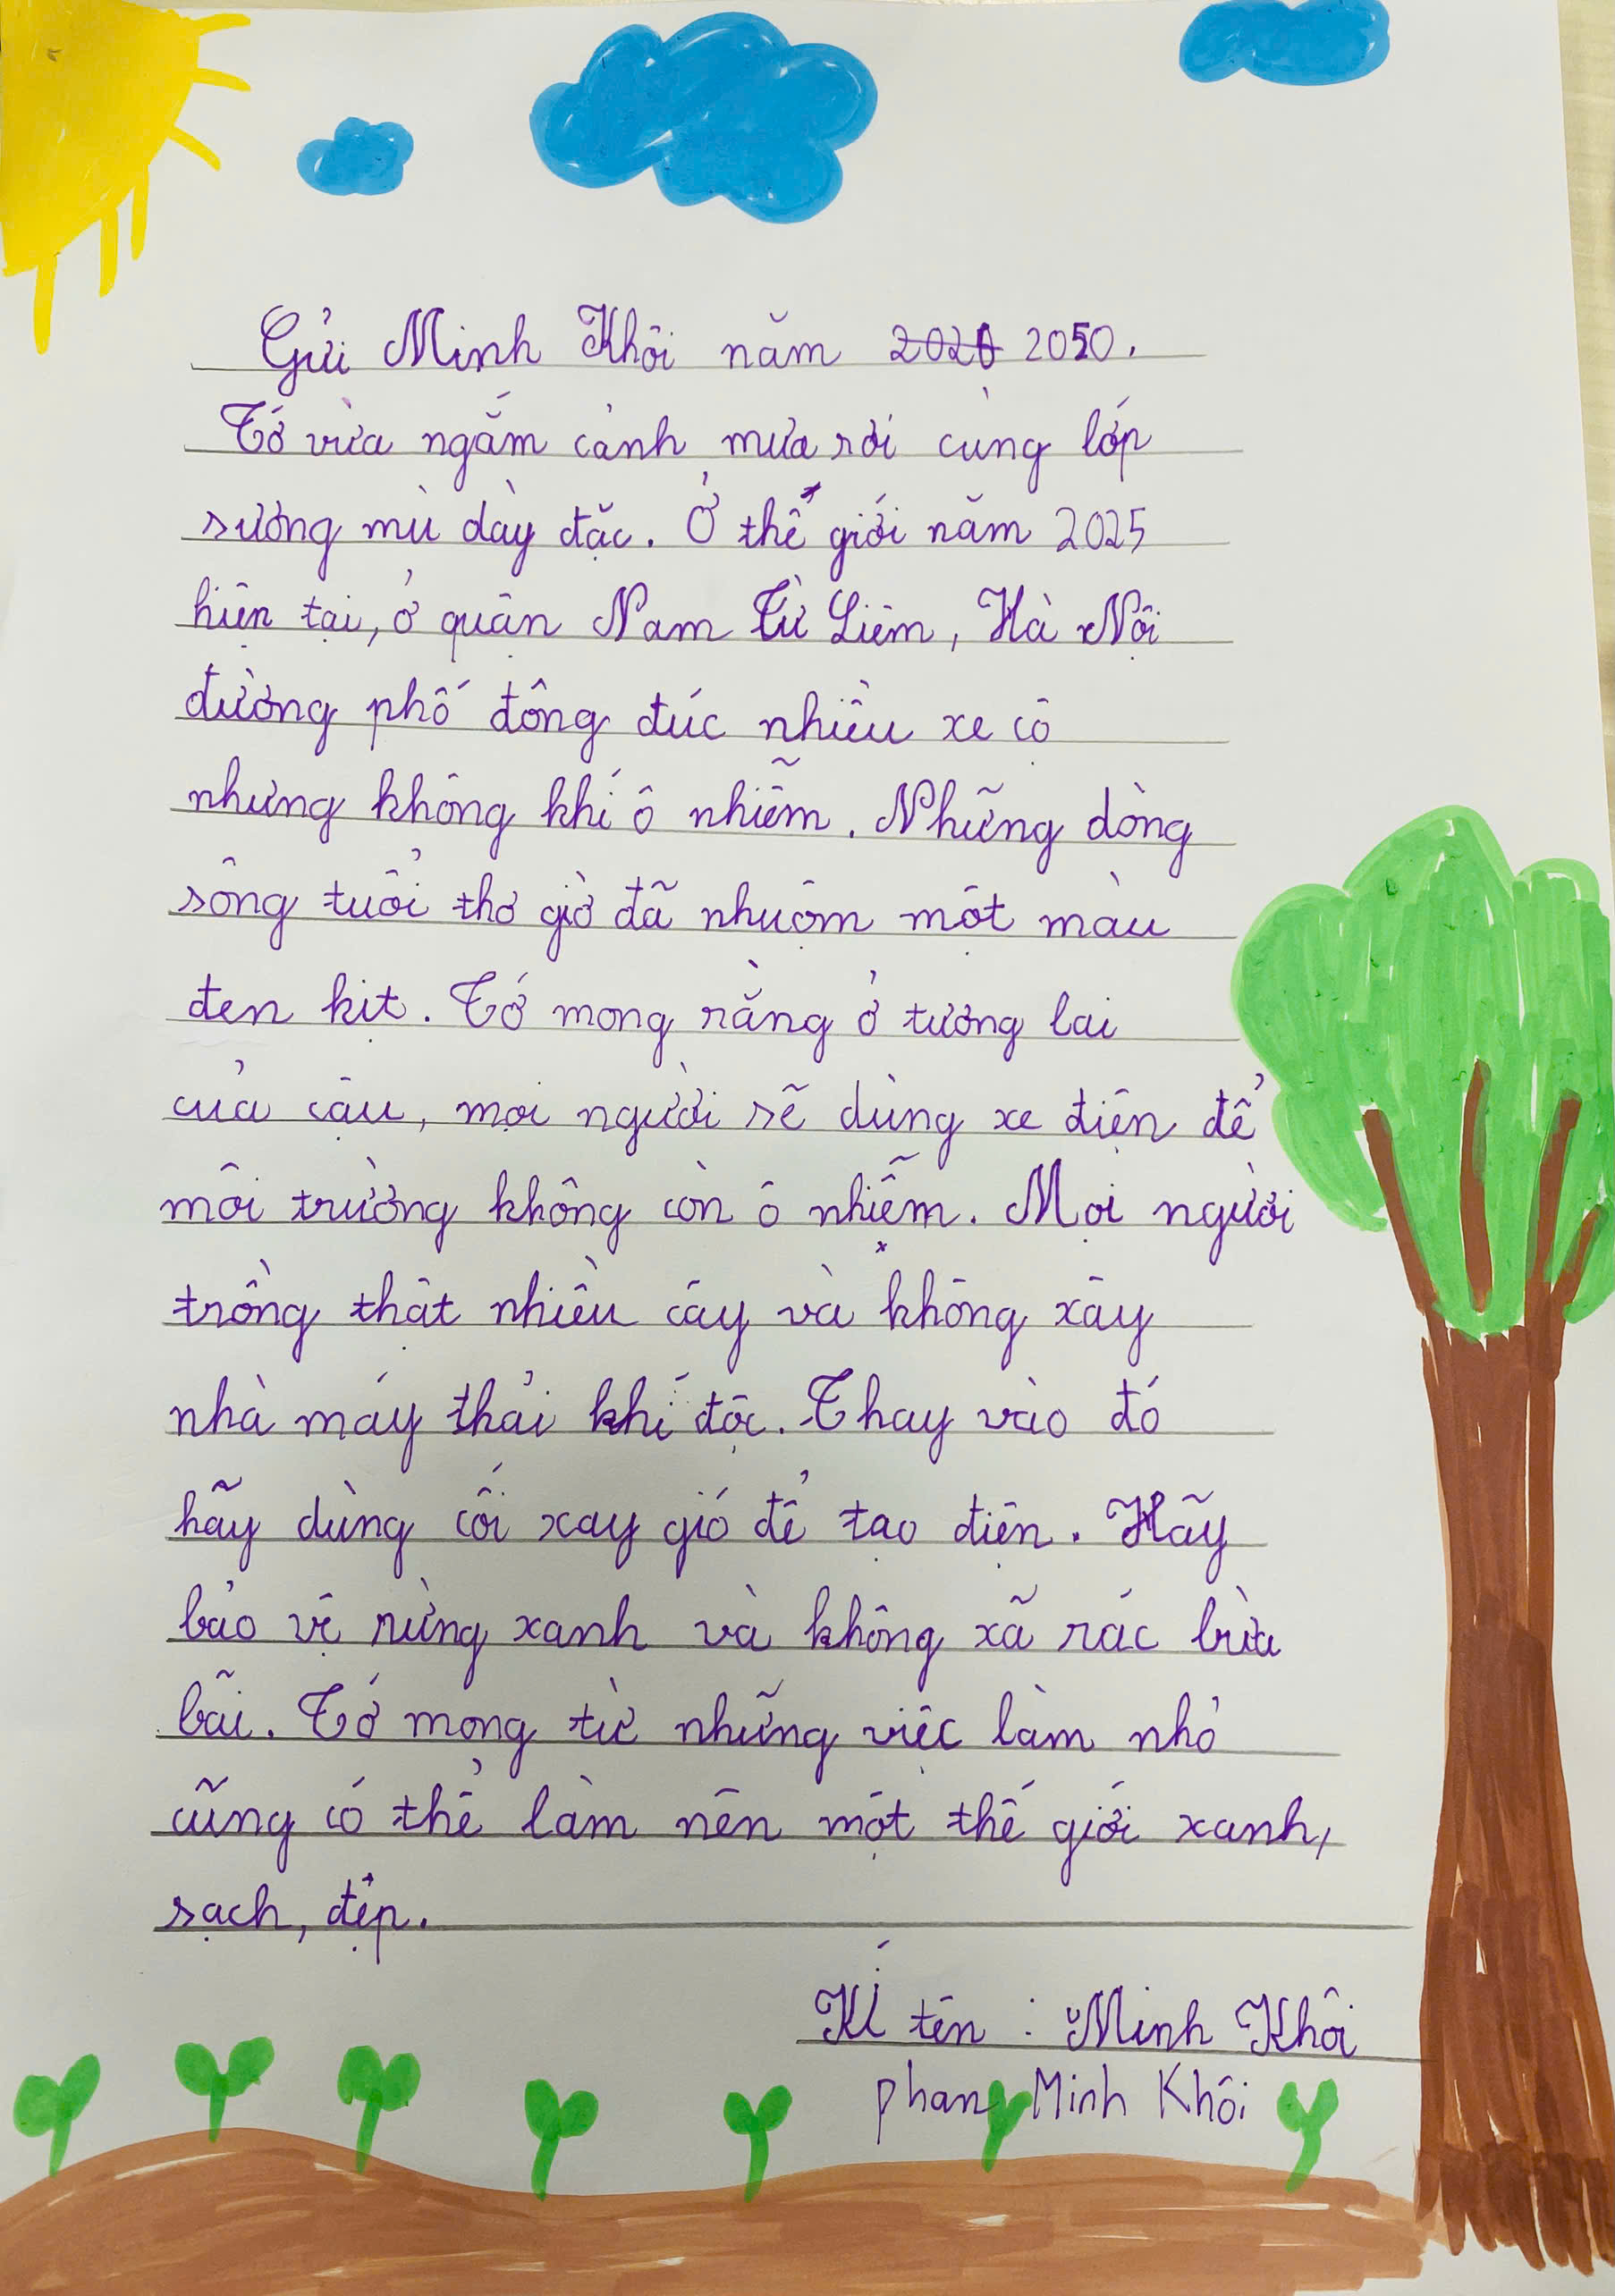 Gửi Minh Khôi năm 2020 2050.
Tớ vừa ngắm cảnh mưa rơi cùng lớp
sương mù dày đặc. Ở thế giới năm 2025
hiện tại, ở quận Nam Từ Liêm, Hà Nội
đường phố đông đúc nhiều xe cộ
nhưng không khí ô nhiễm. Những dòng
sông tuổi thơ giờ đã nhuộm một màu
đen kịt. Tớ mong rằng ở tương lai
của cậu, mọi người sẽ dùng xe điện để
môi trường không còn ô nhiễm. Mọi người
trồng thật nhiều cây và không xây
nhà máy thải khí độc. Thay vào đó
hãy dùng cối xay gió để tạo điện. Hãy
bảo vệ rừng xanh và không xã rác bừa
bãi. Tớ mong từ những việc làm nhỏ
cũng có thể làm nên một thế giới xanh,
sạch, đẹp.
Kí tên : Minh Khôi
phan Minh Khôi